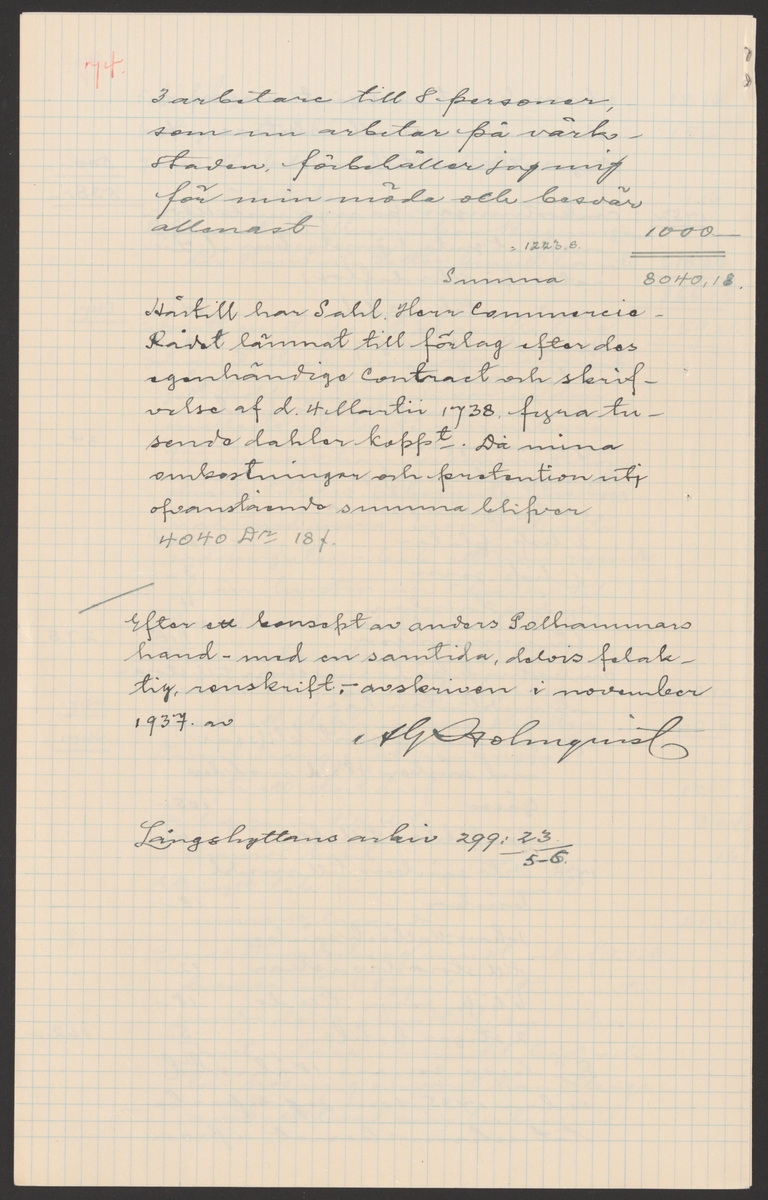 74.
3 arbetare till 8 personer,
som nu arbetar på värk-
staden, förbehåller jag mig
för min möda och besvär
allenast 1000 —
1223.8.
Summa 8040,18.
Härtill har Sahl. Herr Commercie-
Rådet lämnat till förlag efter des
egenhändige Contract och skrif-
velse af d. 4 Martii 1738. fyra tu-
sende dahler koppt. Då mina
omkostningar och pretention utj
ofvanstående summa blifver
4040 Dr 18 f.
Efter ett konsept av anders Polhammars
hand - med en samtida, delvis felak-
tig, renskrift, - avskriven i november
1937. av
Alf Holmquist
Långshyttans arkiv 299: 23
5-6.